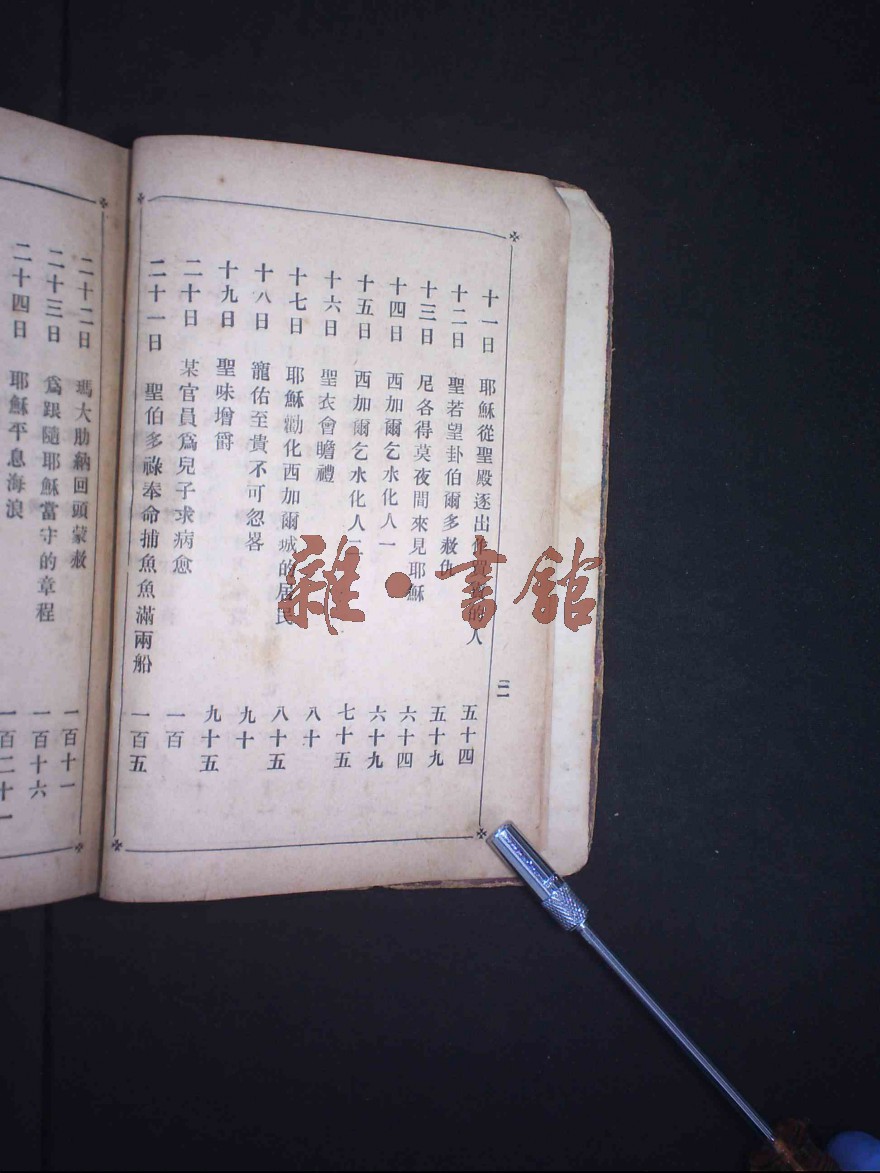 十一日 耶穌從聖殿逐出 的人 五十四
十二日 聖若望卦伯爾多赦仇 五十九
十三日 尼各得莫夜間來見耶穌 六十四
十四日 西加爾乞水化人一 六十九
十五日 西加爾乞水化人二 七十五
十六日 聖衣會瞻禮 八十
十七日 耶穌勸化西加爾城的居民 八十五
十八日 寵佑至貴不可忽畧 九十
十九日 聖味增爵 九十五
二十日 某官員爲兒子求病愈 一百
二十一日 聖伯多祿奉命捕魚魚滿兩船 一百五
二
二十二日 瑪大肋納回頭蒙赦 一百十一
二十三日 爲跟隨耶穌當守的章程 一百十六
二十四日 耶穌平息海浪 一百二十一
雜·書館